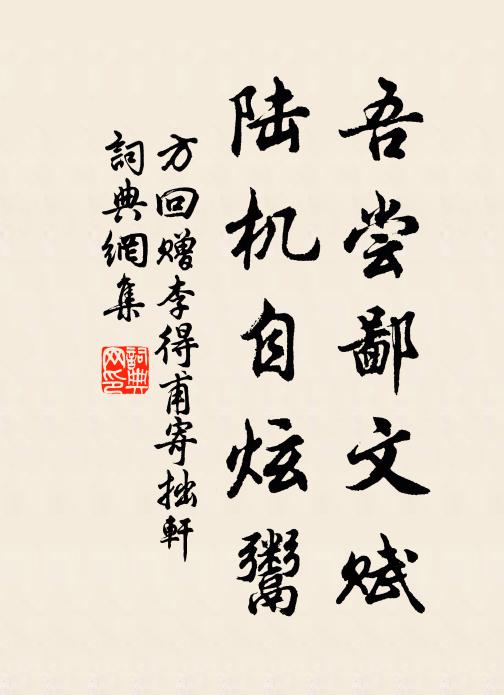 吾尝鄙文赋
陆机自炫鬻
方回赠李得甫寄拙軒
詞典網集
詞典网印